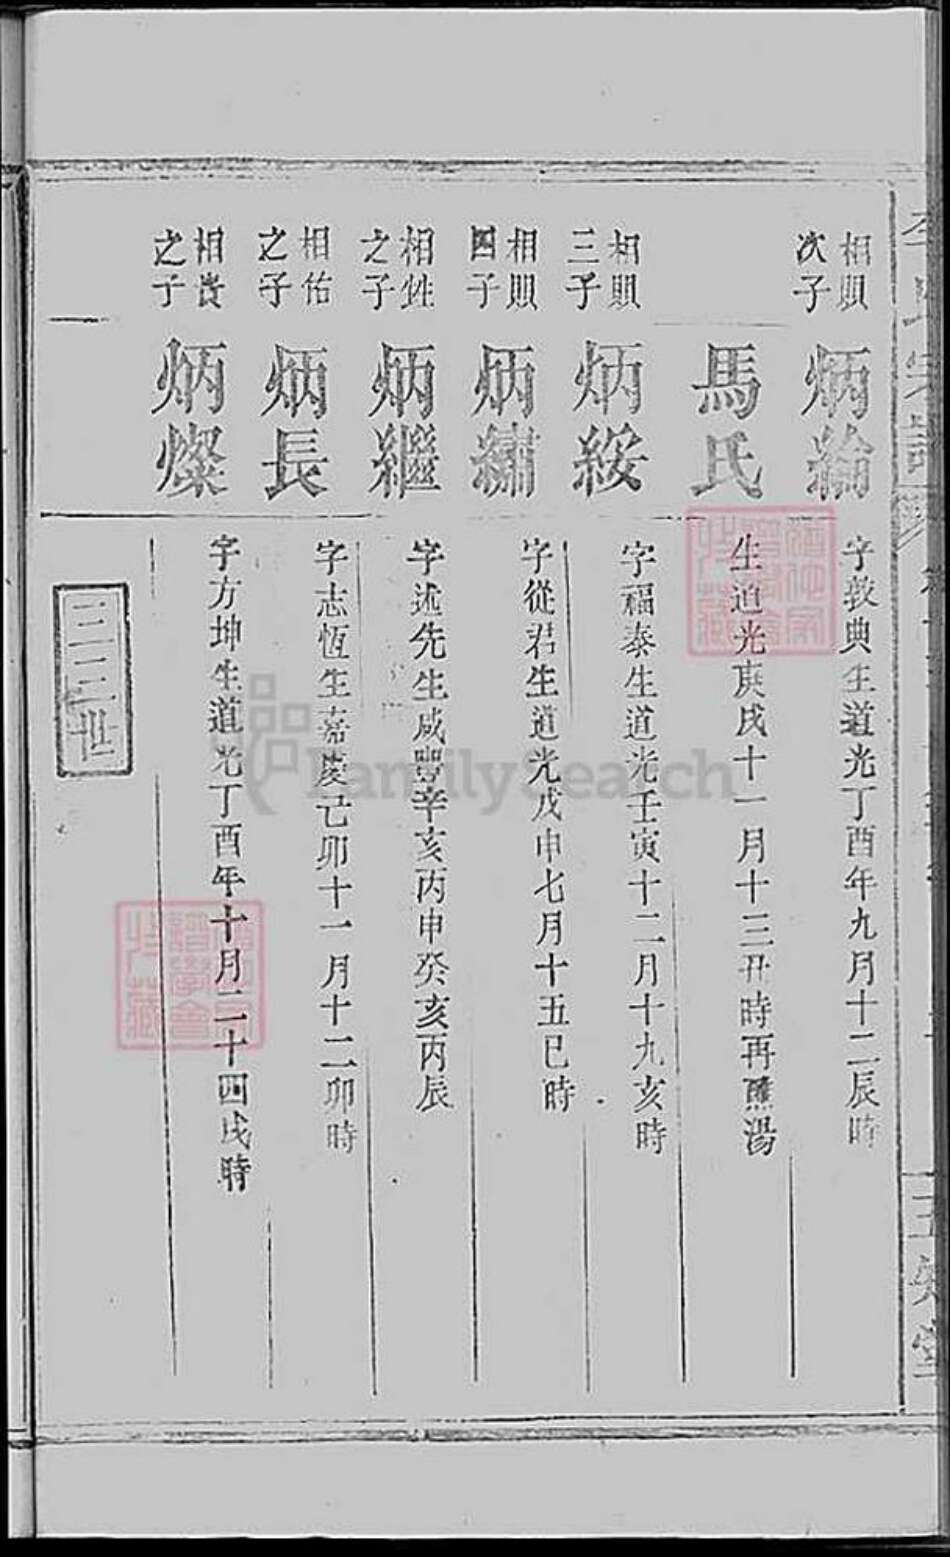 相照
次子
炳綸
字敦典生道光丁酉年九月十二辰時
馬氏
生道光庚戌十一月十三丑時再醮湯
相照
三子
炳綏
字福泰生道光壬寅十二月十九亥時
相照
四子
炳繡
字從君生道光戊申七月十五巳時
相甡
之子
炳繼
字述先生咸豐辛亥丙申癸亥丙辰
相佑
之子
炳長
字志恆生嘉慶己卯十一月十二卯時
相貴
之子
炳燦
字方坤生道光丁酉年十月二十四戌時
三三世
FamilySearch